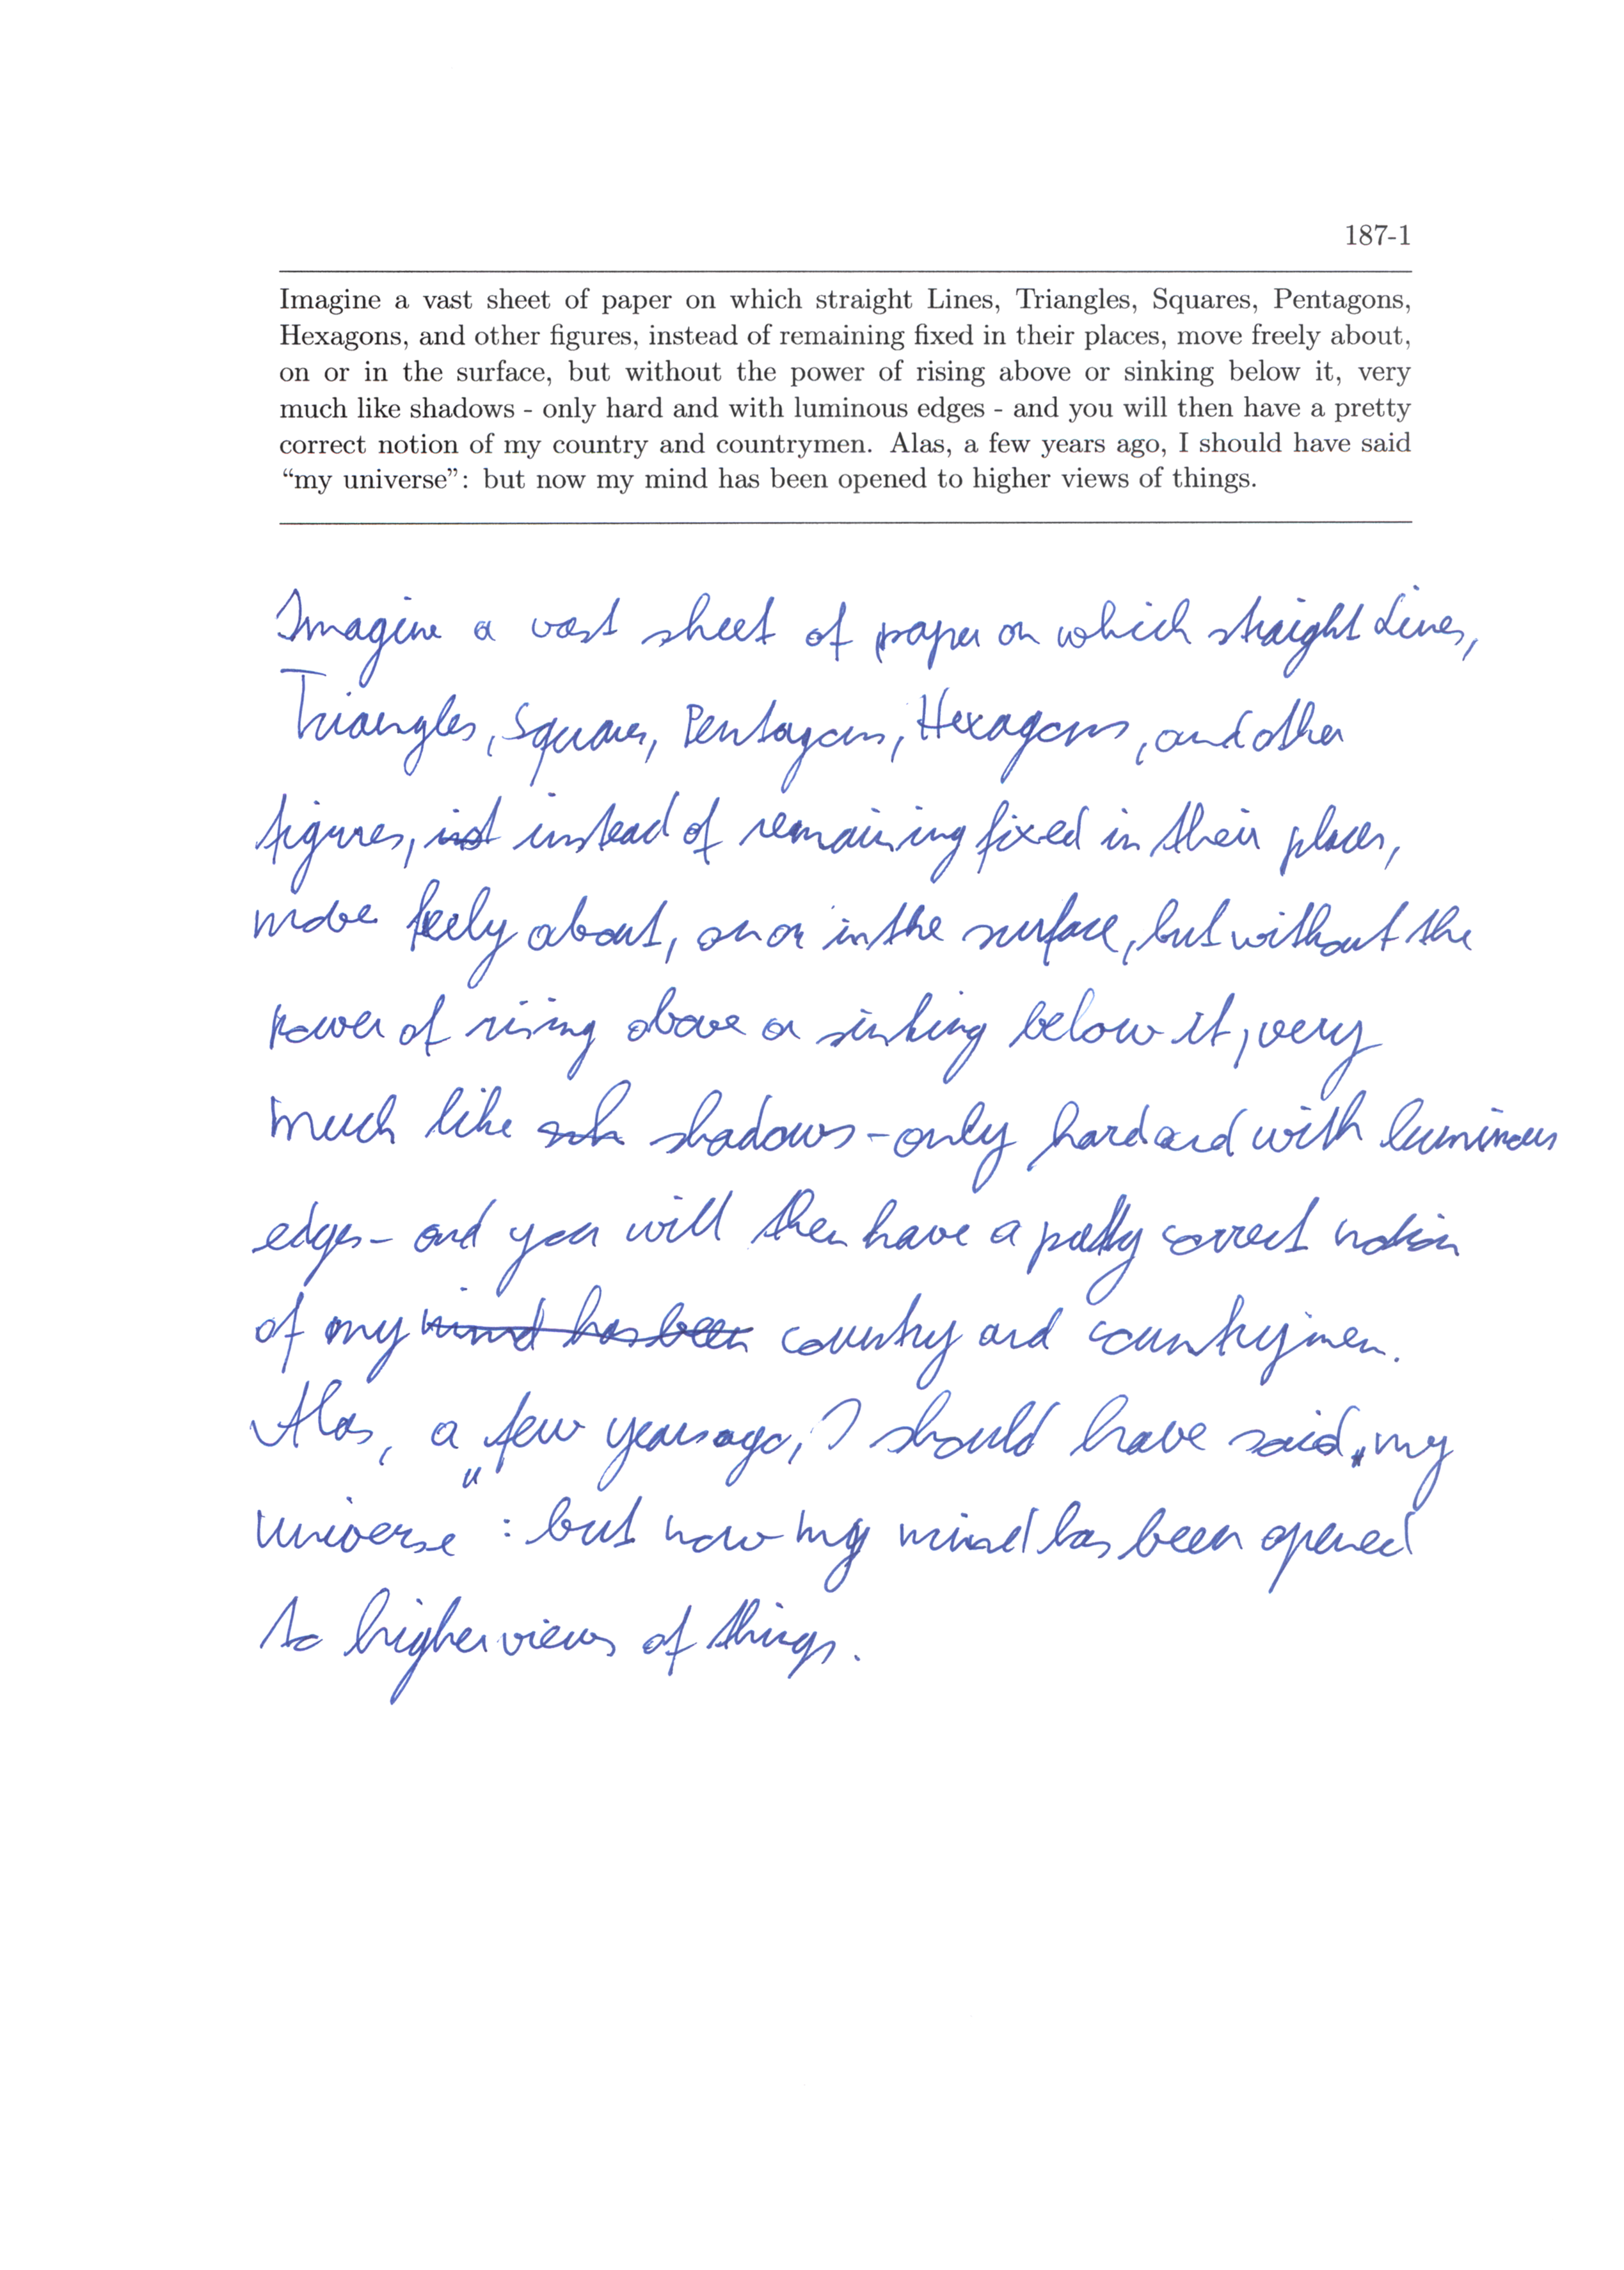 187-1
Imagine a vast sheet of paper on which straight Lines, Triangles, Squares, Pentagons,
Hexagons, and other figures, instead of remaining fixed in their places, move freely about,
on or in the surface, but without the power of rising above or sinking below it, very
much like shadows - only hard and with luminous edges - and you will then have a pretty
correct notion of my country and countrymen. Alas, a few years ago, I should have said
“my universe”: but now my mind has been opened to higher views of things.
Imagine a vast sheet of paper on which straight Lines,
Triangles, Squares, Pentagons, Hexagons, and other
figures, inst instead of remaining fixed in their places,
move feely about, on or in the surface, but without the
power of rising above or sinking below it, very
much like sh shadows - only hard and with luminous
edges - and you will then have a pretty correct notion
of my mind has been country and countrymen.
Alas, a few years ago, I should have said „my
universe": but now my mind has been opened
to higher views of things.